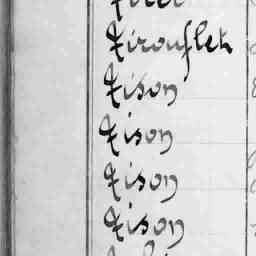 Tirouflet
Tison
Tison
Tison
Tison